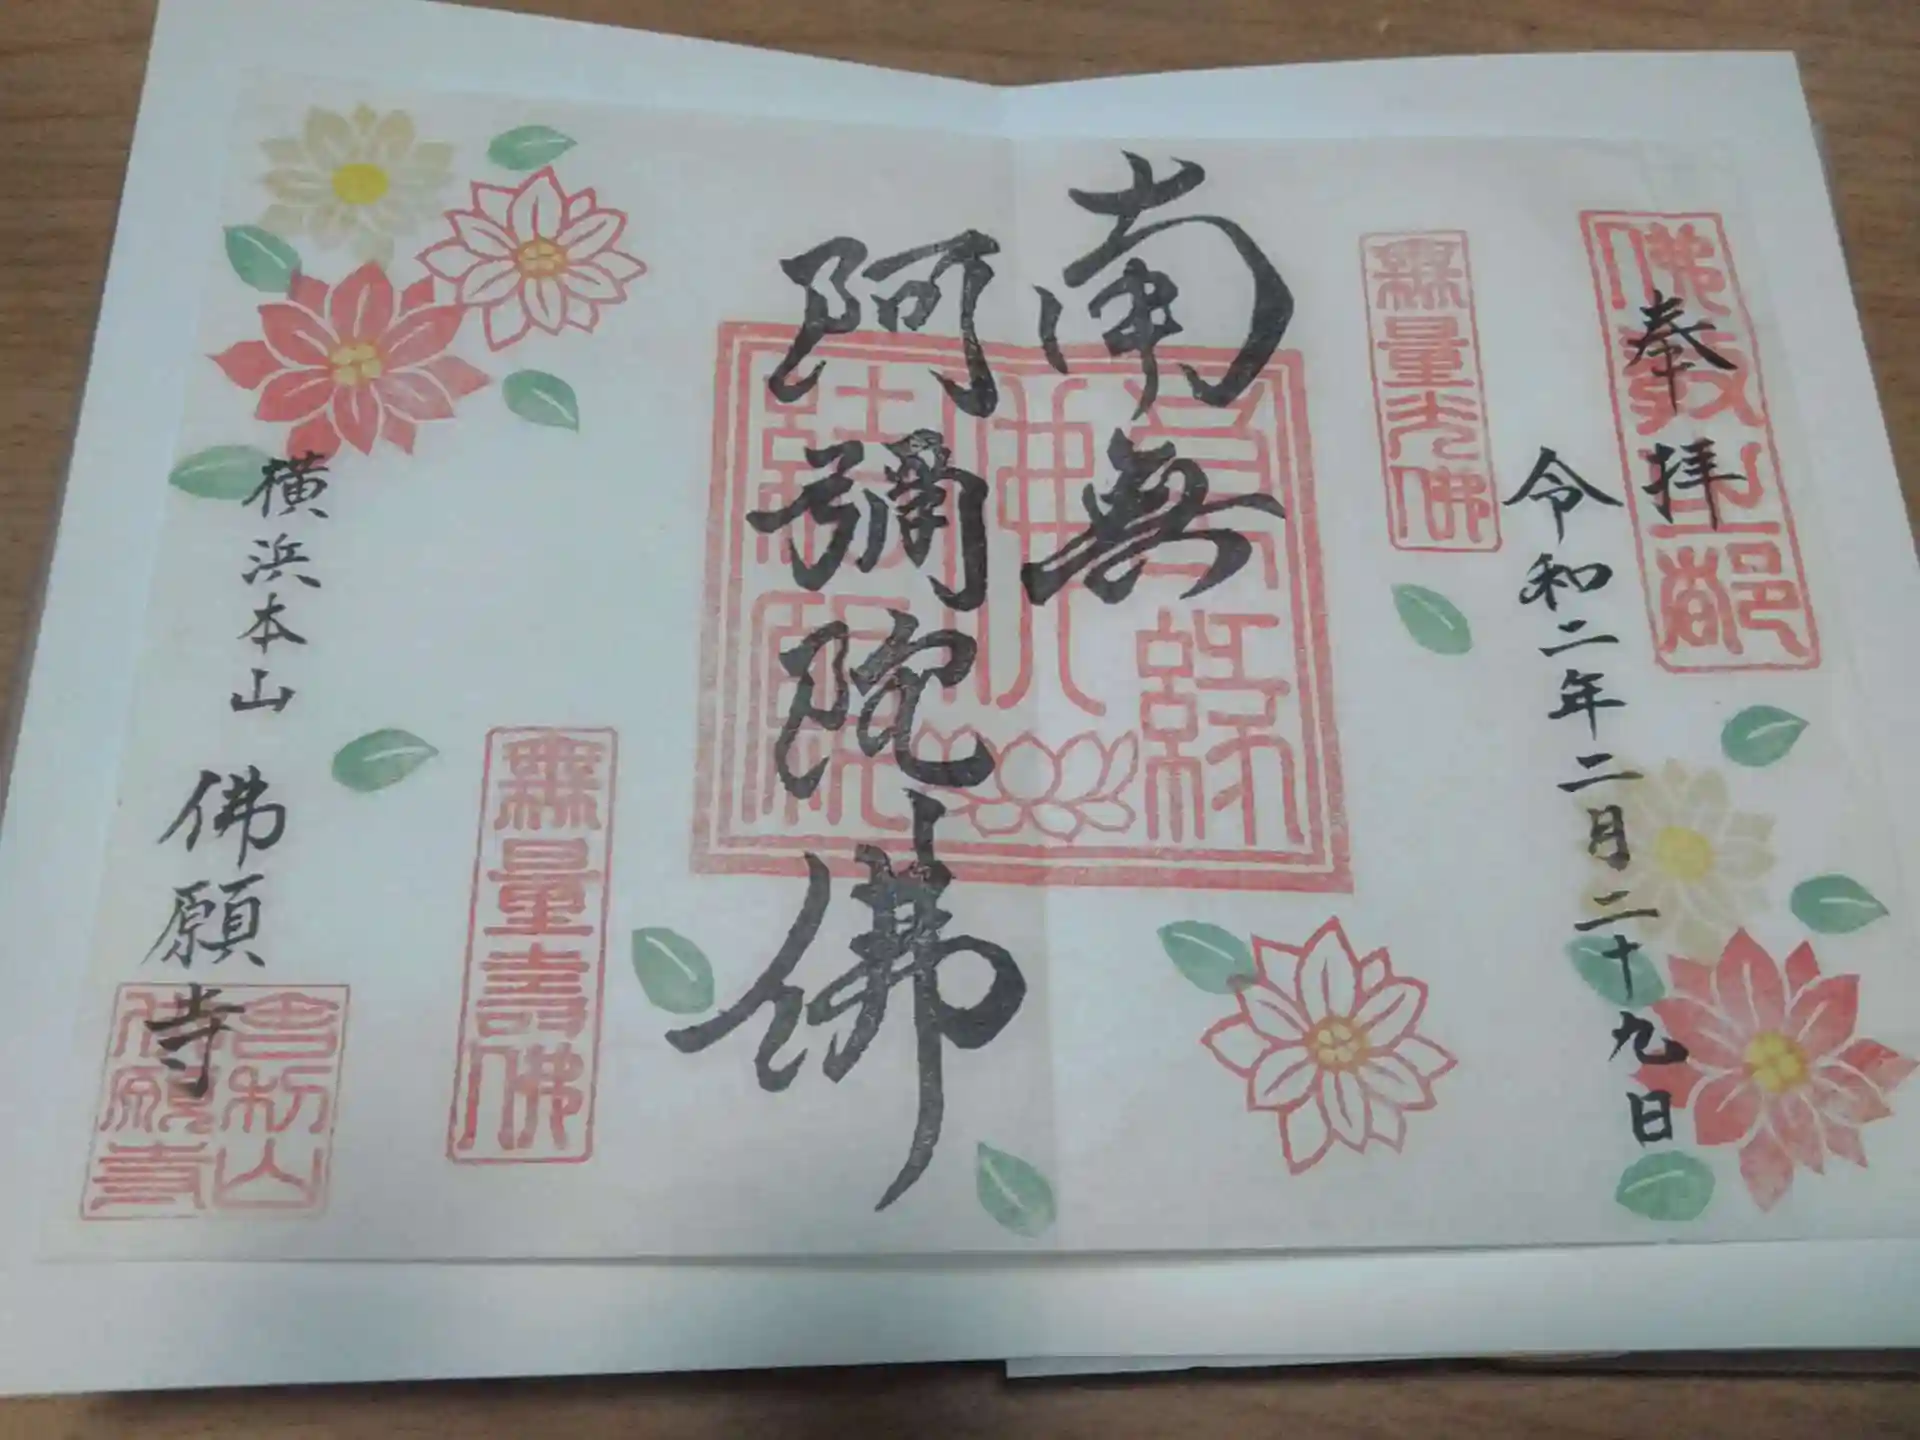 奉拝
佛教之都
令和二年二月二十九日
無量光佛
南無
阿彌陀佛
無量壽佛
横浜本山
佛願寺
舎利山
佛願寺